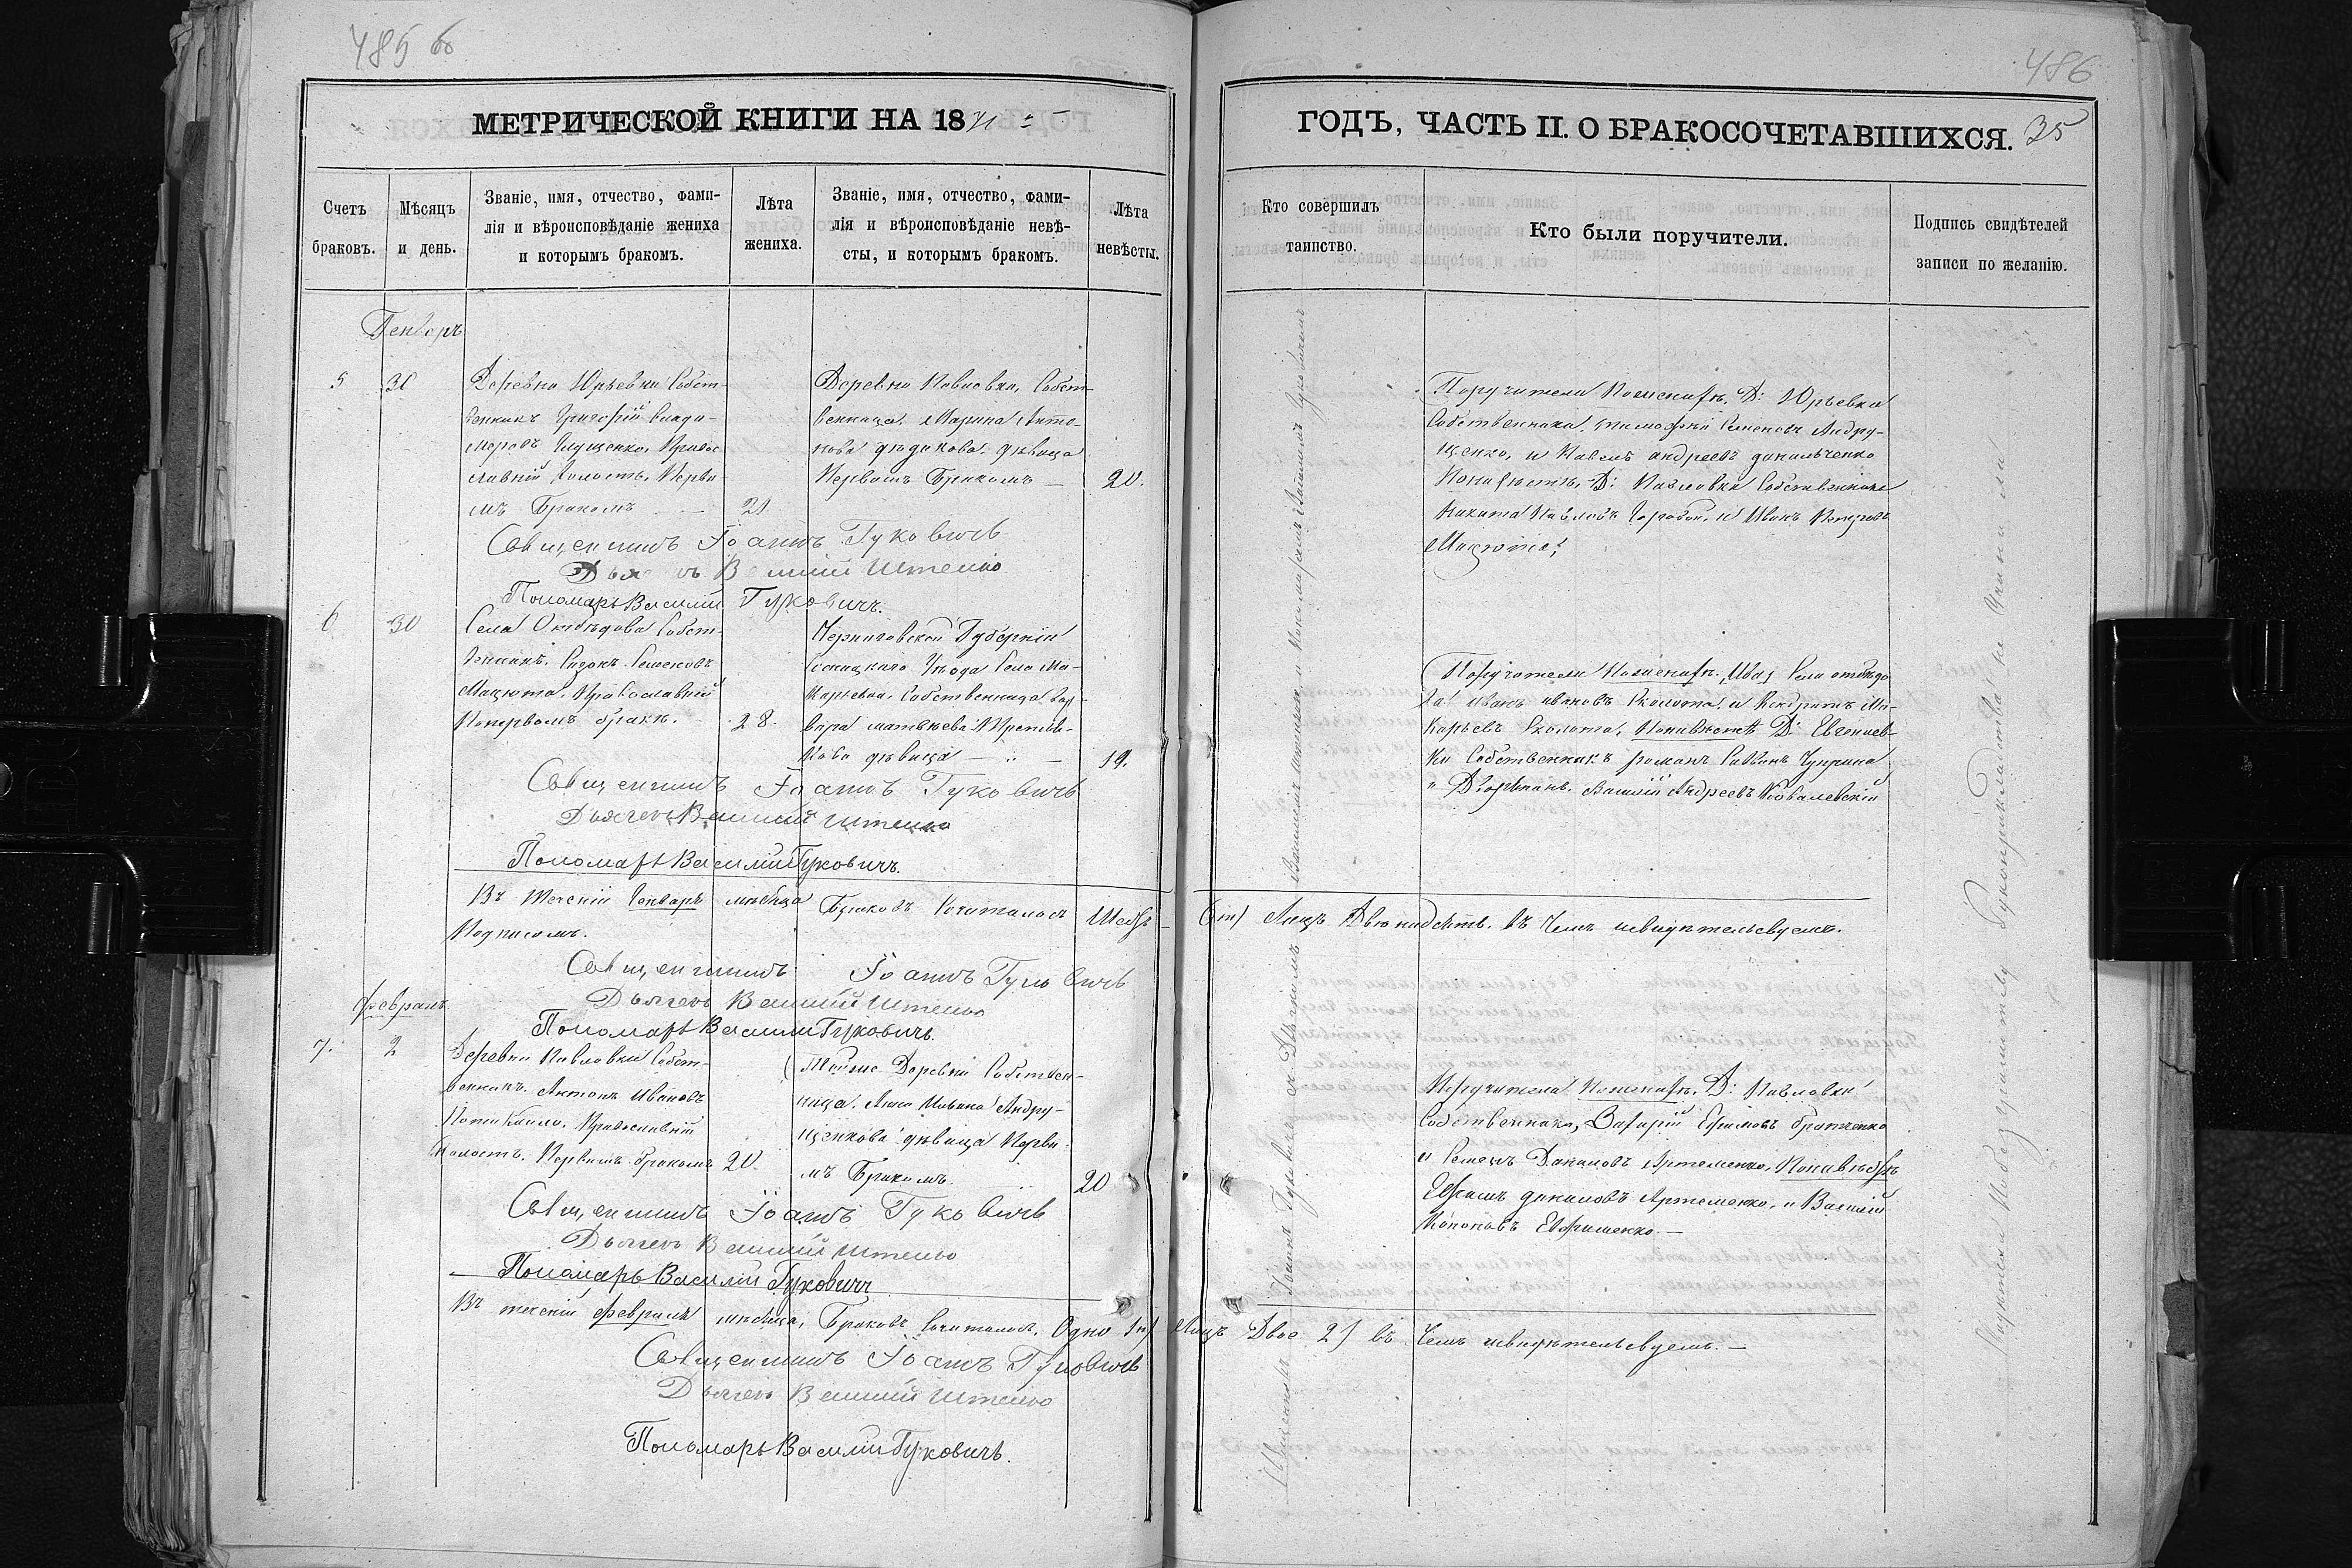 485 об
МЕТРИЧЕСКОЙ КНИГИ НА 1871
Счетъ браковъ.
Мѣсяцъ и день.
Званіе, имя, отчество, фами-
лія и вѣроисповѣданіе жениха
и которымъ бракомъ.
Лѣта жениха.
Званіе, имя, отчество, фами-
лія и вѣроисповѣданіе невѣ-
сты, и которымъ бракомъ.
Лѣта невѣсты.
Генваръ
5
30
Деревни Юрьевки Собст-
венникъ Григорій Влади-
меровъ Глущенко, Правос
лавній Холость, Перви
мъ Бракомъ
21
Деревни Павловки, Собст-
венница Марина Анто-
нова дѣдикова дѣвица
Первимъ Бракомъ —
20.
Священникъ Іоаннъ Гуковичъ
Дьячекъ Василий Штепко
Пономарь Василий Гуковичъ.
6
30
Села Отбѣдова Собст-
венникъ Сазонъ Семеновъ
Мацюта, Православній
Попервомъ бракѣ.
28.
Черниговской Губерніи
Сосницкаго Уѣзда Села Ма-
карьевки, Собственница Вар-
вара матвѣева
кова дѣвица
19.
Священникъ Іоаннъ Гуковичъ
Дьячекъ Василий Штепко
Пономарь Василий Гуковичъ.
Въ течении Генваръ мѣсяца Браковъ Сочиталось Шесть
Подписомъ.
Священникъ Іоаннъ Гуковичъ
Дьячекъ Василий Штепко
Пономарь Василий Гуковичъ.
февраль
7.
2
Деревни Павловки Собст-
венникъ. Антонъ Ивановъ
Православній
Холостъ. Первимъ бракомъ
20.
Тойже Деревни Собствен-
ница. Анна Ильина Андру-
щенкова дѣвица Перви
мъ Бракомъ.
20
Священникъ Іоаннъ Гуковичъ
Дьячекъ Василий Штепко
Пономарь Василий Гуковичъ
Въ течении февраля мѣсяца, Браковъ Сочиталось, Одно 1н)
Священникъ Іоаннъ Гуковичъ
Дьячекъ Василий Штепко
Пономарь Василий Гуковичъ.
486
ГОДЪ, ЧАСТЬ II. О БРАКОСОЧЕТАВШИХСЯ.
35
Кто совершилъ таинство.
Кто были поручители.
Подпись свидѣтелей
записи по желанію.
Поручители Поженихѣ. Д: Юрьевки
Собственники, тимофій Семеновъ Андру-
щенко, и Павелъ андреевъ данильченко
Понивѣстѣ, Д: Павловки Собственники
Никита Павловъ Горобой, и Иванъ Петровъ
Мацюта;
Поручители Поженихѣ., Села отбѣдо
ва Иванъ ивановъ Сколота, и Кондратъ Ма-
карьевъ Сколота, Понивѣстѣ Д: Евгениев-
ки Собственникъ романъ Савинъ Чуприна
и Дворянинъ. Василій Андреевъ Ковалевскій
6ть) Лицъ Двюнадцять. въ Чемъ исвидѣтельсвуемъ.
Поручители Поженихѣ. Д: Павловки
Собственники, Захарій Ефимовъ братченко
и Семенъ Даниловъ Артеменко, Понивѣстѣ
Ефимъ даниловъ Артеменко, и Василій
Кононовъ Ефименко. —
Лицъ Двое 2) въ Чемъ исвидѣтельсвуемъ. —